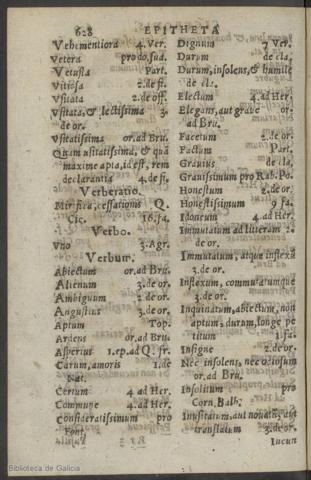 628 EPITHETA
Vehementiora 4. Ver.
Vetera pro do. sua.
Vetusta Part.
Vitiosa 2. de fi.
Vsitata 2. de off.
Vsitata, & lectissima 3.
de or.
Vsitatissima or. ad Bru.
Quàm usitatissima, & quà
maximè apta, id est, rem
declarantia 4. de fi.
Verberatio.
Mirifica, cessationis Q.
Cic. 16. fa.
Verbo.
Vno 3. Agr.
Verbum.
Abiectum or. ad Bru.
Alienum 3. de or.
Ambiguum 2. de or.
Angustius 3. de or.
Aptum Top.
Ardens or. ad Bru.
Asperius 1. ep. ad Q. fr.
Carum, amoris 1. de
Nat.
Certum 4. ad Her.
Commune 4. ad Her.
Consideratissimum pro
Font.
Dignum 7 Ver.
Durum de cla.
Durum, insolens, & humile
de cla.
Electum 4. ad Her.
Elegans, aut graue or-
ad Bru.
Facetum 2. de or.
Factum Part.
Grauius de cla.
Grauissimum pro Rab. Po.
Honestum 2. de or.
Honestissimum 9 fa.
Idoneum 4. ad Her.
Immutatum ad litteram 2.
de or.
Immutatum, atque inflexū
3. de or.
Inflexum, commutatumque
3. de or.
Inquinatum, abiectum, non
aptum, durum, longe pe
titum 1. fa.
Insigne 2. de or.
Nec insolens, nec odiosum
or. ad Bru.
Insolitum pro
Corn. Balb.
Inusitatum, aut nouatū, aut
translatum 3. de or.
Iucun
Biblioteca de Galicia